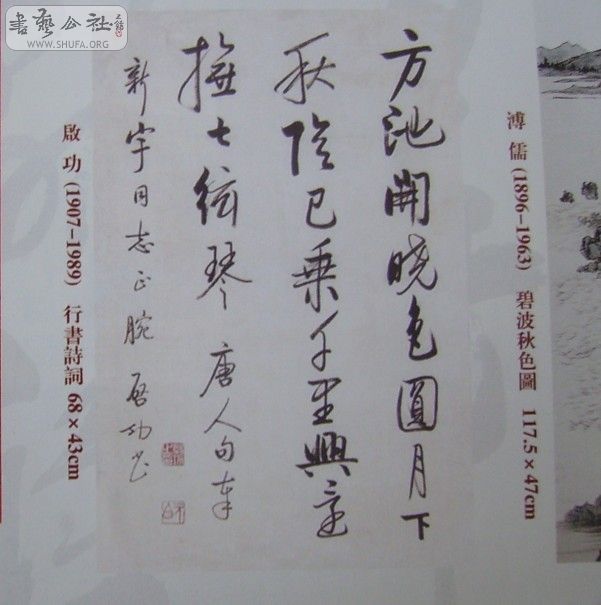 書藝公社
WWW.SHUFA.ORG
溥 儒 (1896-1963) 碧波秋色圖 117.5×47cm
方池開曉色圓月下
秋陰已乘千里興還
撫七絃琴 唐人句奉
新宇同志正腕 启功书
啟 功 (1907-1989) 行書詩詞 68×43cm